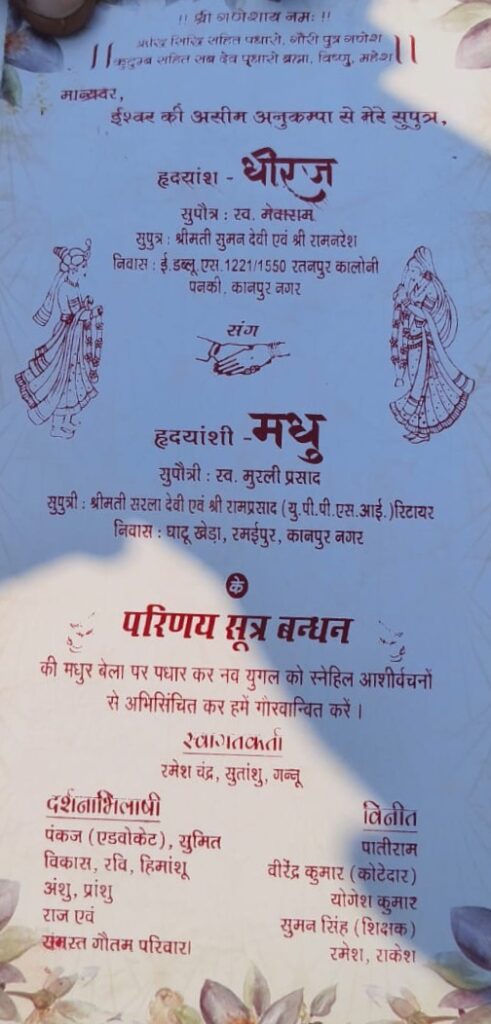 !! श्री गणेशाय नमः !!
ऋद्धि सिद्धि सहित पधारो, गौरी पुत्र गणेश
कुटुम्ब सहित सब देव पधारो ब्रह्मा, विष्णु, महेश
मान्यवर,
ईश्वर की असीम अनुकम्पा से मेरे सुपुत्र,
हृदयांश - धीरज
सुपौत्र : स्व. मेवाराम
सुपुत्र : श्रीमती सुमन देवी एवं श्री रामनरेश
निवास : ई.डब्लू.एस.1221/1550 रतनपुर कालोनी
पनकी, कानपुर नगर
संग
हृदयांशी - मधु
सुपौत्री : स्व. मुरली प्रसाद
सुपुत्री : श्रीमती सरला देवी एवं श्री रामप्रसाद (यु.पी.पी.एस.आई.)रिटायर
निवास : घाटू खेड़ा, रमईपुर, कानपुर नगर
के
परिणय सूत्र बन्धन
की मधुर बेला पर पधार कर नव युगल को स्नेहिल आशीर्वचनों
से अभिसिंचित कर हमें गौरवान्वित करें ।
स्वागतकर्ता
रमेश चंद्र, सुतांशु, गन्नू
दर्शनाभिलाषी
पंकज (एडवोकेट), सुमित
विकास, रवि, हिमांशू
अंशु, प्रांशु
राज एवं
समस्त गौतम परिवार।
विनीत
पातीराम
वीरेंद्र कुमार (कोटेदार)
योगेश कुमार
सुमन सिंह (शिक्षक)
रमेश, राकेश